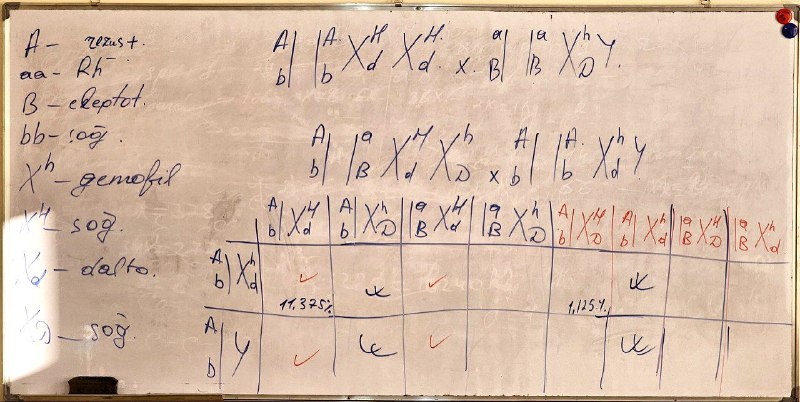 A – rezus+.
aa – Rh⁻
B – elleptot.
bb – soğ.
X^h – gemofil
X^H – soğ.
X_d – dalto.
X_D – soğ.
A b | | A b X^H_d X^H_d x a B | | a B X^h_D Y.
A b | | a B X^H_d X^h_D x A b | | A b X^h_d Y
A b | X^H_d A b | X^h_D | a B X^H_d | a B X^h_D A b | X^H_D A b | X^h_d a B | X^H_D | a B X^h_d
A b | X^h_d ✓ ✓
11,375% 1,125%
A b | Y ✓ ✓